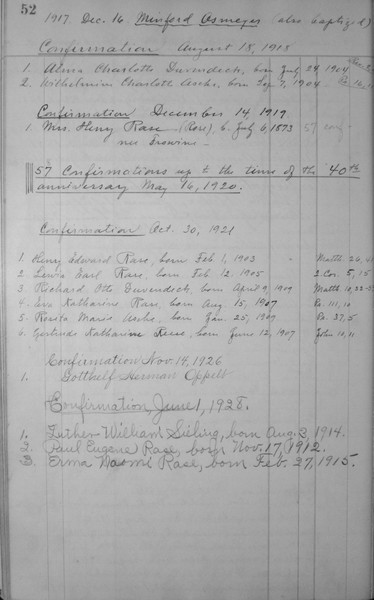 52
1917. Dec. 16. Minford Osmeyer (also baptized)
Confirmation August 18, 1918
1. Alma Charlotte Duvendeck, born July 24, 1904
2. Wilhelmine Charlotte Asche, born Sep 7, 1904
Confirmation December 14, 1919
1. Mrs. Henry Rase (Rose), b. July 6, 1873 57 con
nee Frowine
57 Confirmations up to the time of the 40th
anniversary May 16, 1920.
Confirmation Oct. 30, 1921
1. Henry Edward Rase, born Feb 1, 1903 Matth. 26, 41
2. Lewis Earl Rase, born Feb 12, 1905 2 Cor. 5, 15
3. Richard Otto Duvendeck, born April 9, 1909 Matth 10, 32-
4. Eva Katharine Rase, born Aug. 15, 1907 Ps. 111, 10
5. Rosita Marie Asche, born Jan. 25, 1909 Ps. 37, 5
6. Gertrude Katharine Reese, born June 12, 1907 John 10, 11
Confirmation Nov 14, 1926
1. Gotthelf Herman Oppelt
Confirmation June 1, 1928.
1. Luther William Sieling, born Aug. 3, 1914.
2. Paul Eugene Rase, born Nov. 17, 1912.
3. Erma Naomi Rase, born Feb. 27, 1915.